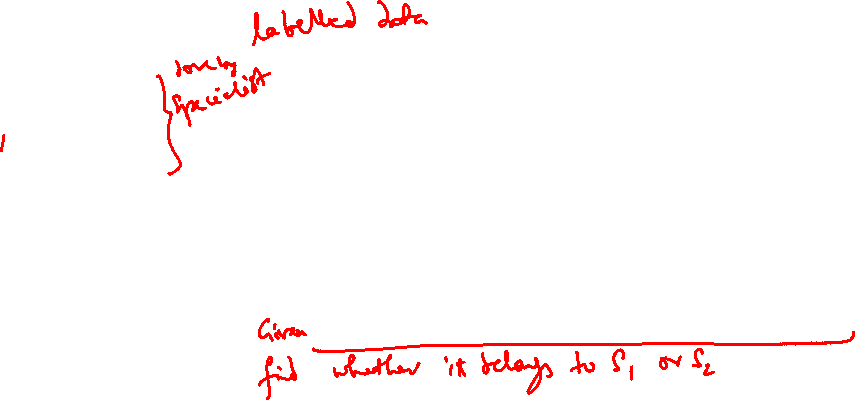 labelled data
done by
Specialist
Given
find whether it belongs to S1 or S2